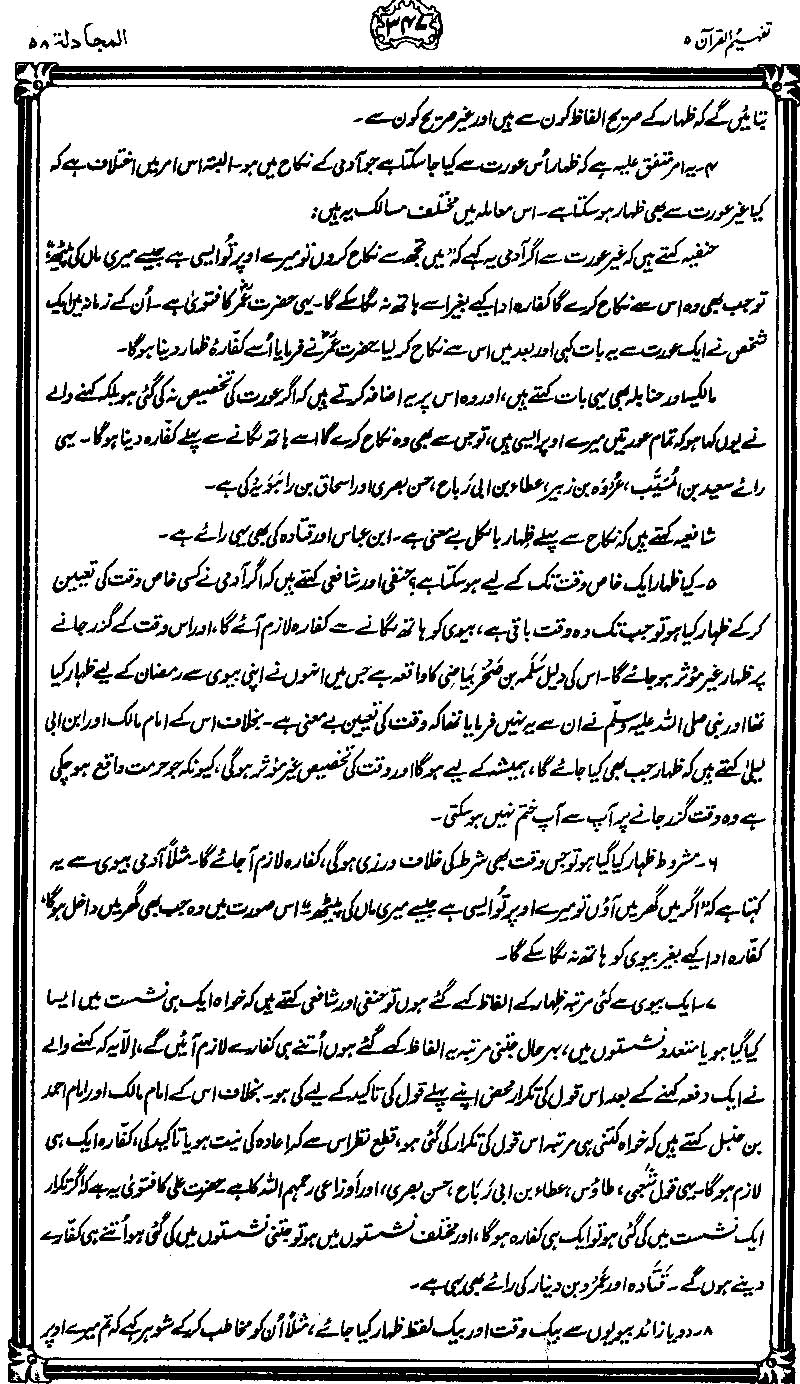 تفہیم القرآن ۵
۳۴۷
المجادلۃ ۵۸
بتائیں گے کہ ظہار کے صریح الفاظ کون سے ہیں اور غیر صریح کون سے۔
۴۔ یہ امر متفق علیہ ہے کہ ظہار اُس عورت سے کیا جا سکتا ہے جو آدمی کے نکاح میں ہو۔ البتہ اس امر میں اختلاف ہے کہ
کیا غیر عورت سے بھی ظہار ہو سکتا ہے۔ اس معاملہ میں مختلف مسالک یہ ہیں:
حنفیہ کہتے ہیں کہ غیر عورت سے اگر آدمی یہ کہے کہ "میں تجھ سے نکاح کروں تو میرے اوپر تُو ایسی ہے جیسے میری ماں کی پیٹھ"،
تو جب بھی وہ اس سے نکاح کرے گا کفارہ ادا کیے بغیر اسے ہاتھ نہ لگا سکے گا۔ یہی حضرت عمرؓ کا فتویٰ ہے۔ اُن کے زمانہ میں ایک
شخص نے ایک عورت سے یہ بات کہی اور بعد میں اس سے نکاح کر لیا۔ حضرت عمرؓ نے فرمایا اُسے کفارۂ ظہار دینا ہوگا۔
مالکیہ اور حنابلہ بھی یہی بات کہتے ہیں، اور وہ اس پر یہ اضافہ کرتے ہیں کہ اگر عورت کی تخصیص نہ کی گئی ہو بلکہ کہنے والے
نے یوں کہا ہو کہ تمام عورتیں میرے اوپر ایسی ہیں، تو جس سے بھی وہ نکاح کرے گا اسے ہاتھ لگانے سے پہلے کفارہ دینا ہوگا۔ یہی
رائے سعید بن المُسَیَّب، عُرْوَہ بن زبیر، عطاء بن ابی رَباح، حسن بصری اور اسحاق بن راہَوَیہ کی ہے۔
شافعیہ کہتے ہیں کہ نکاح سے پہلے ظہار بالکل بے معنی ہے۔ ابن عباس اور قتادہ کی بھی یہی رائے ہے۔
۵۔ کیا ظہار ایک خاص وقت تک کے لیے ہو سکتا ہے؟ حنفی اور شافعی کہتے ہیں کہ اگر آدمی نے کسی خاص وقت کی تعیین
کر کے ظہار کیا ہو تو جب تک وہ وقت باقی ہے، بیوی کو ہاتھ لگانے سے کفارہ لازم آئے گا، اور اس وقت کے گزر جانے
پر ظہار غیر مؤثر ہو جائے گا۔ اس کی دلیل سَلَمہ بن صَخْر بَیاضی کا واقعہ ہے جس میں انہوں نے اپنی بیوی سے رمضان کے لیے ظہار کیا
تھا اور نبی صلی اللہ علیہ وسلّم نے ان سے یہ نہیں فرمایا تھا کہ وقت کی تعیین بے معنی ہے۔ بخلاف اس کے امام مالک اور ابن ابی
لیلیٰ کہتے ہیں کہ ظہار جب بھی کیا جائے گا، ہمیشہ کے لیے ہوگا اور وقت کی تخصیص غیر مؤثر ہوگی، کیونکہ جو حرمت واقع ہو چکی
ہے وہ وقت گزر جانے پر آپ سے آپ ختم نہیں ہو سکتی۔
۶۔ مشروط ظہار کیا گیا ہو تو جس وقت بھی شرط کی خلاف ورزی ہوگی، کفارہ لازم آ جائے گا۔ مثلاً آدمی بیوی سے یہ
کہتا ہے کہ "اگر میں گھر میں آؤں تو میرے اوپر تُو ایسی ہے جیسے میری ماں کی پیٹھ"۔ اس صورت میں وہ جب بھی گھر میں داخل ہوگا،
کفارہ ادا کیے بغیر بیوی کو ہاتھ نہ لگا سکے گا۔
۷۔ ایک بیوی سے کئی مرتبہ ظہار کے الفاظ کہے گئے ہوں تو حنفی اور شافعی کہتے ہیں کہ خواہ ایک ہی نشست میں ایسا
کیا گیا ہو یا متعدد نشستوں میں، بہرحال جتنی مرتبہ یہ الفاظ کہے گئے ہوں اُتنے ہی کفارے لازم آئیں گے، اِلّا یہ کہ کہنے والے
نے ایک دفعہ کہنے کے بعد اس قول کی تکرار محض اپنے پہلے قول کی تاکید کے لیے کی ہو۔ بخلاف اس کے امام مالک اور امام احمد
بن حنبل کہتے ہیں کہ خواہ کتنی ہی مرتبہ اس قول کی تکرار کی گئی ہو، قطع نظر اس سے کہ اعادہ کی نیت ہو یا تاکید کی، کفارہ ایک ہی
لازم ہوگا۔ یہی قول شعبی، طاؤس، عطاء بن ابی رَباح، حسن بصری، اور اَوزاعی رحمہم اللہ کا ہے۔ حضرت علی کا فتویٰ یہ ہے کہ اگر تکرار
ایک نشست میں کی گئی ہو تو ایک ہی کفارہ ہوگا، اور مختلف نشستوں میں ہو تو جتنی نشستوں میں کی گئی ہو اُتنے ہی کفارے
دینے ہوں گے۔ قَتَادہ اور عَمرو بن دینار کی رائے بھی یہی ہے۔
۸۔ دو یا زائد بیویوں سے بیک وقت اور بیک لفظ ظہار کیا جائے، مثلاً اُن کو مخاطب کر کے شوہر کہے کہ تم میرے اوپر